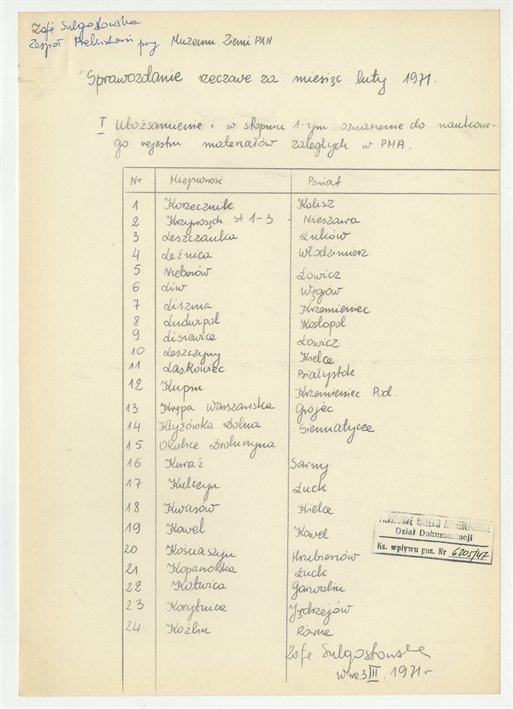 Zofia Sulgostowska
Zespół Prahistorii przy Muzeum Ziemi PAN
Sprawozdanie rzeczowe za miesiąc luty 1971.
I Utożsamienie i w stopniu 1-ym oznaczenie do naukowe-
go rejestru materiałów zaległych w PMA.
Nr Miejscowość Powiat
1 Korzecznik Kolisz
2 st 1-3 Nieszawa
3 Leszczanka Łuków
4 Leźnica Włodzimierz
5 Nieborów Łowicz
6 Liw Węgrów
7 Liszma Krzemieniec
8 Ludwipol Kostopol
9 Lisiewice Łowicz
10 Leszczyny Kielce
11 Laskowiec Białystok
12 Kupin Krzemieniec Pod.
13 Krępa Warszawska Grójec
14 Kłyzówka Dolna Siemiatycze
15 Okolice Drohiczyna
16 Kuraż Sarny
17 Kulczyn Łuck
18 Kwasów Kielce
19 Kowel Kowel
20 Kościaszyn Hrubieszów
21 Łuck
22 Kotwica Garwolin
23 Korytnica Jędrzejów
24 Koźlin Równe
PAŃSTWOWE MUZEUM ARCHEOLOGICZNE
Dział Dokumentacji
Ks. wpływu poz. Nr 6205/47
Zofia Sulgostowska
W-wa 3 III 1971 r